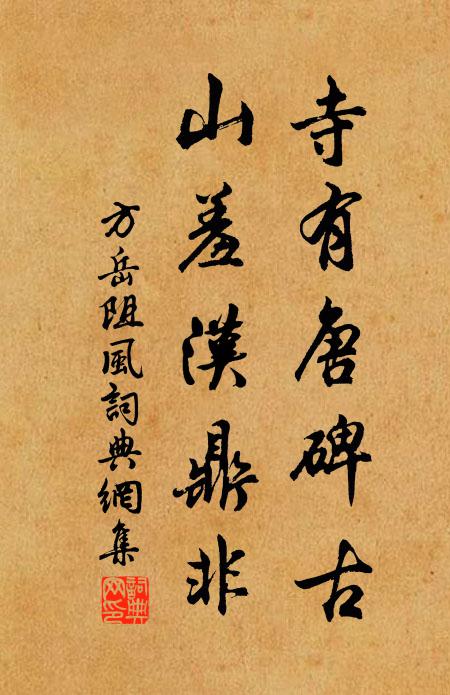 寺有唐碑古
山羞漢鼎非
方岳阻風詞典網集
詞典
网印